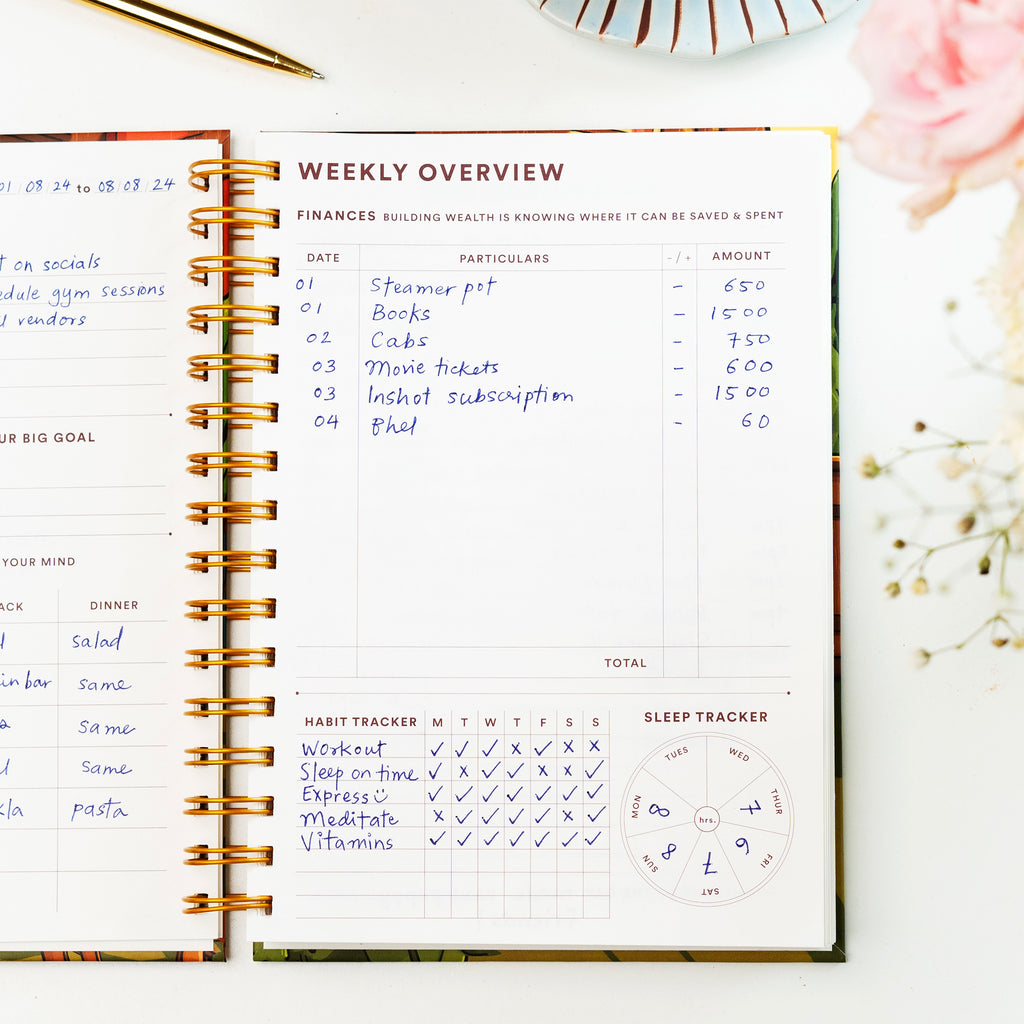 01 08 24 to 08 08 24
on socials
gym sessions
vendors
UR BIG GOAL
YOUR MIND
ACK DINNER
salad
in bar same
same
same
pasta
WEEKLY OVERVIEW
FINANCES BUILDING WEALTH IS KNOWING WHERE IT CAN BE SAVED & SPENT
DATE PARTICULARS - / + AMOUNT
01 Steamer pot - 650
01 Books - 1500
02 Cabs - 750
03 Movie tickets - 600
03 Inshot subscription - 1500
04 Bhel - 60
TOTAL
HABIT TRACKER M T W T F S S
Workout ✓ ✓ ✓ x ✓ x x
Sleep on time ✓ x ✓ ✓ x x ✓
Express ✓ ✓ ✓ ✓ ✓ ✓ ✓
Meditate x ✓ ✓ ✓ ✓ x ✓
Vitamins ✓ ✓ ✓ ✓ ✓ ✓ ✓
SLEEP TRACKER
TUES
WED
MON 8
THUR 7
hrs.
SUN 8
FRI 6
SAT 7